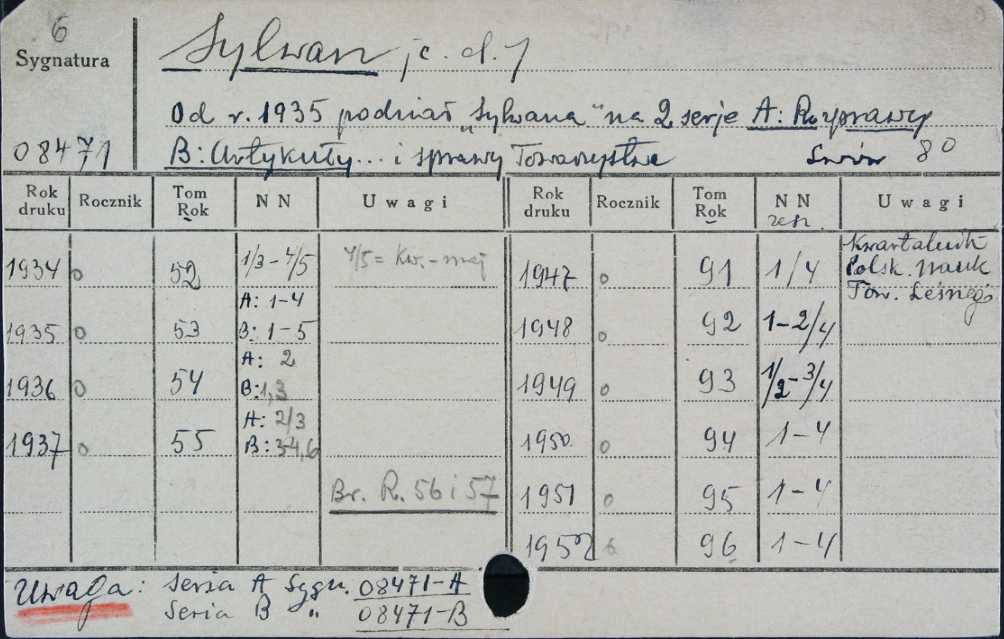 6
Sygnatura
08471
Sylwan /c. d./
Od r. 1935 podział "Sylwana" na 2 serje A: Rozprawy
B: Artykuły... i sprawy Towarzystwa Lwów 8°
Rok druku Rocznik Tom Rok NN Uwagi Rok druku Rocznik Tom Rok NN zesz. Uwagi
1934 o 52 1/3-4/5 4/5 = Kw.-maj 1947 o 91 1/4 Kwartalnik
Polsk. Nauk
Tow. Leśnego
1935 o 53 A: 1-4
B: 1-5 1948 o 92 1-2/4
1936 o 54 A: 2
B: 1,3 1949 o 93 1/2-3/4
1937 o 55 A: 2/3
B: 3-4,6 1950 o 94 1-4
Br. R. 56 i 57 1951 o 95 1-4
1952 96 1-4
Uwaga: Seria A Sygn. 08471-A
Seria B " 08471-B